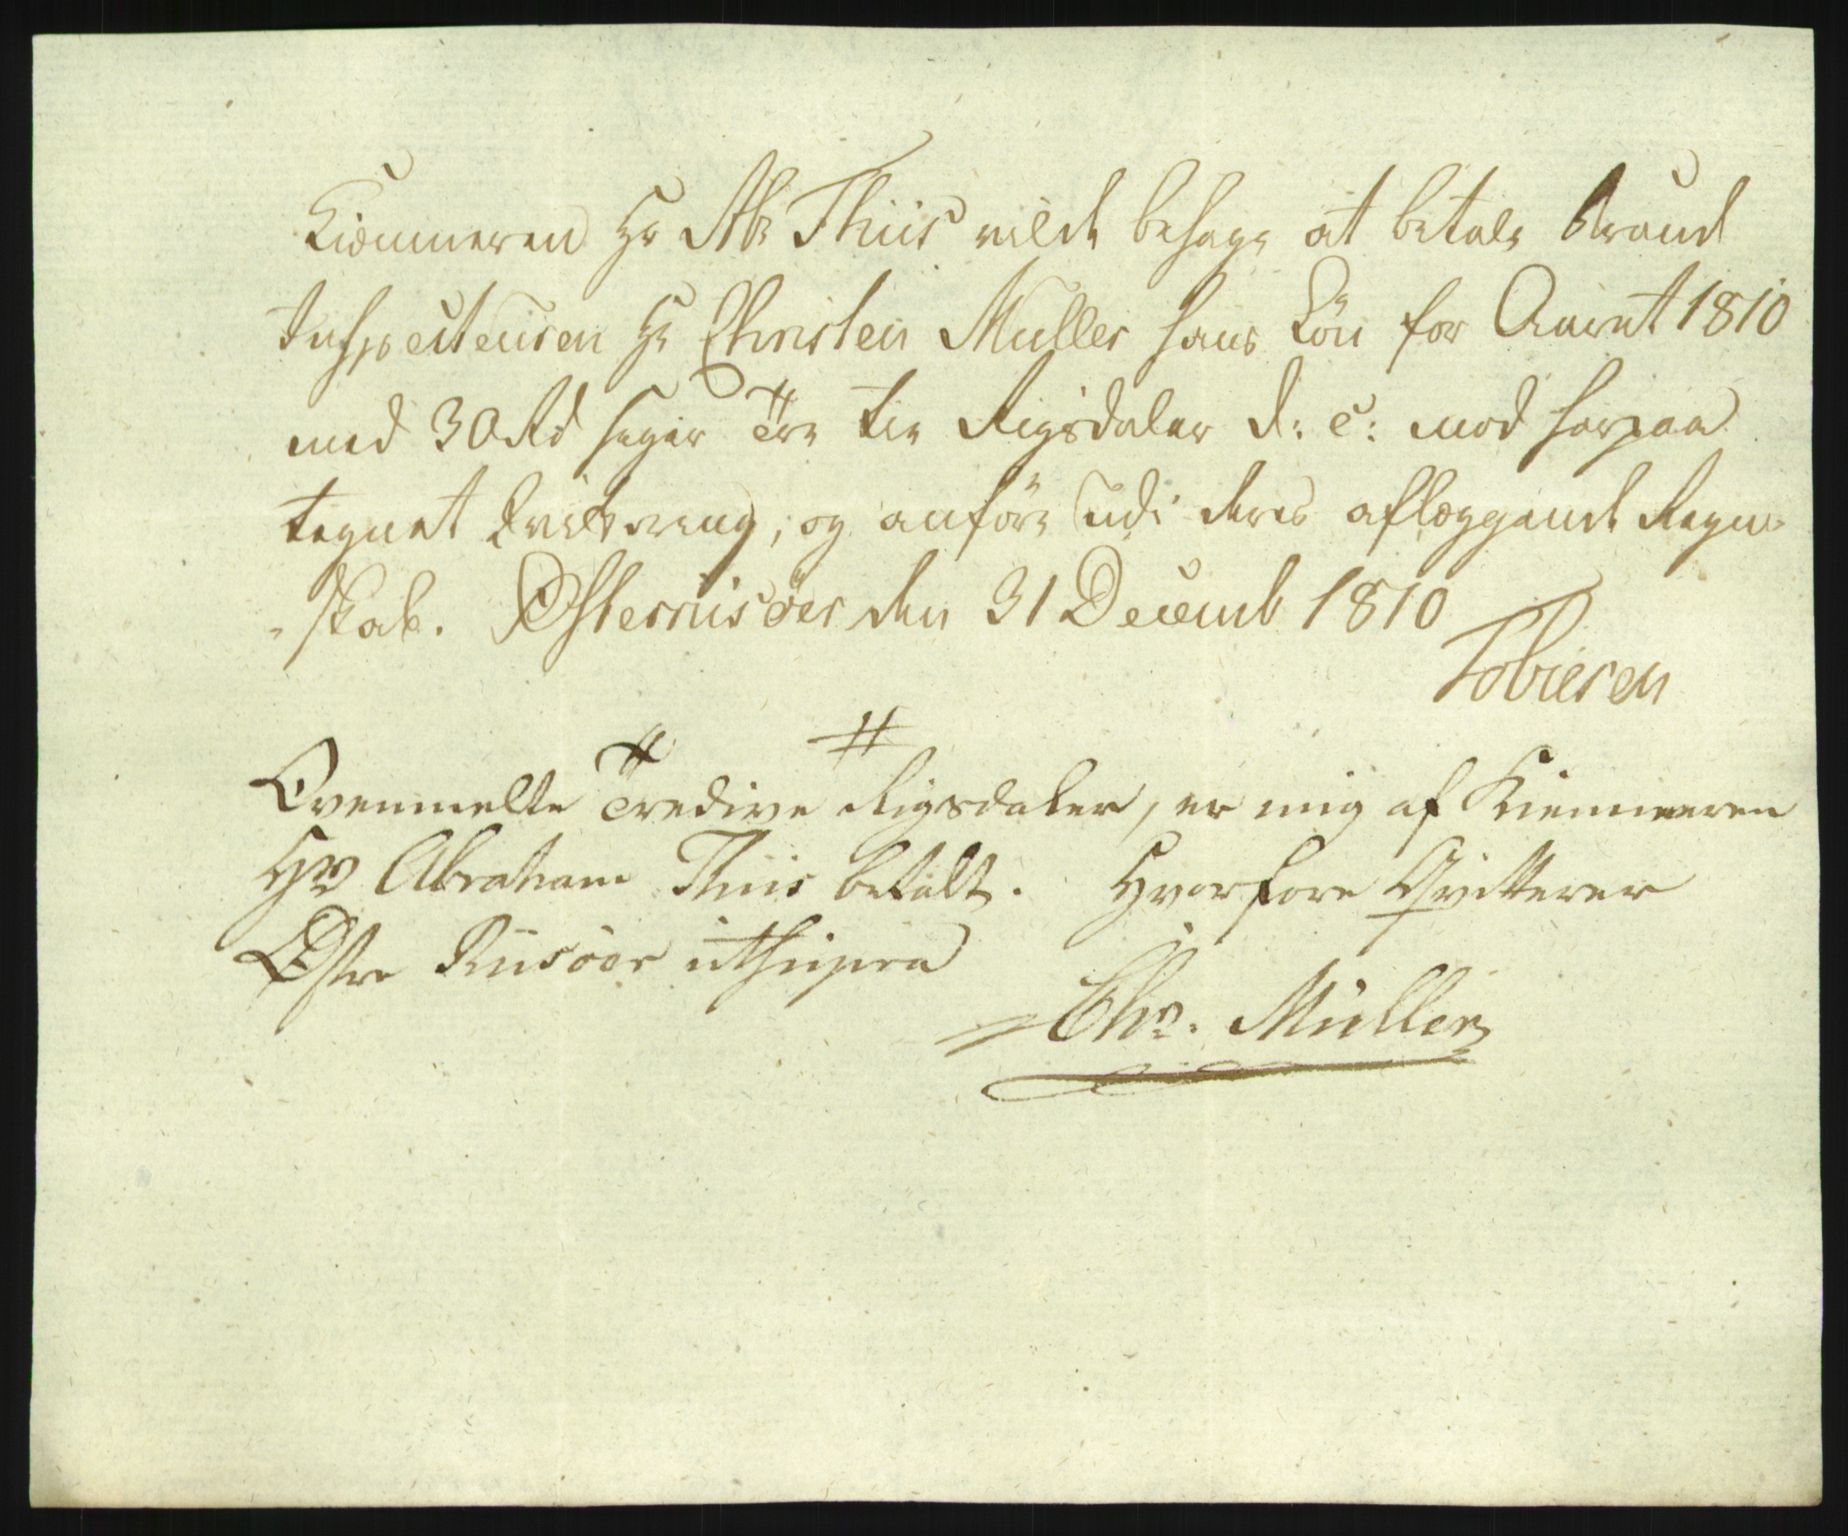 Kiæmneren Hr Ab: Thiis vilde behage at betale Brand
Inspecteuren Hr Christen Muller hans Lön for Aaret 1810
med 30 Rd siger Tre tie Rigsdaler d: c: mod herpaa
tegnet Qvittering, og anföre udi deres aflæggende Regn-
-skab. Österriisöer den 31 Decemb 1810
Tobiesen
Ovenmelte Tredive Rigsdaler, er mig af Kiemneren
Hr Abraham Thiis betalt. Hvorfore Qvitterer
Østre Riisöer ut supra
Chr. Müller